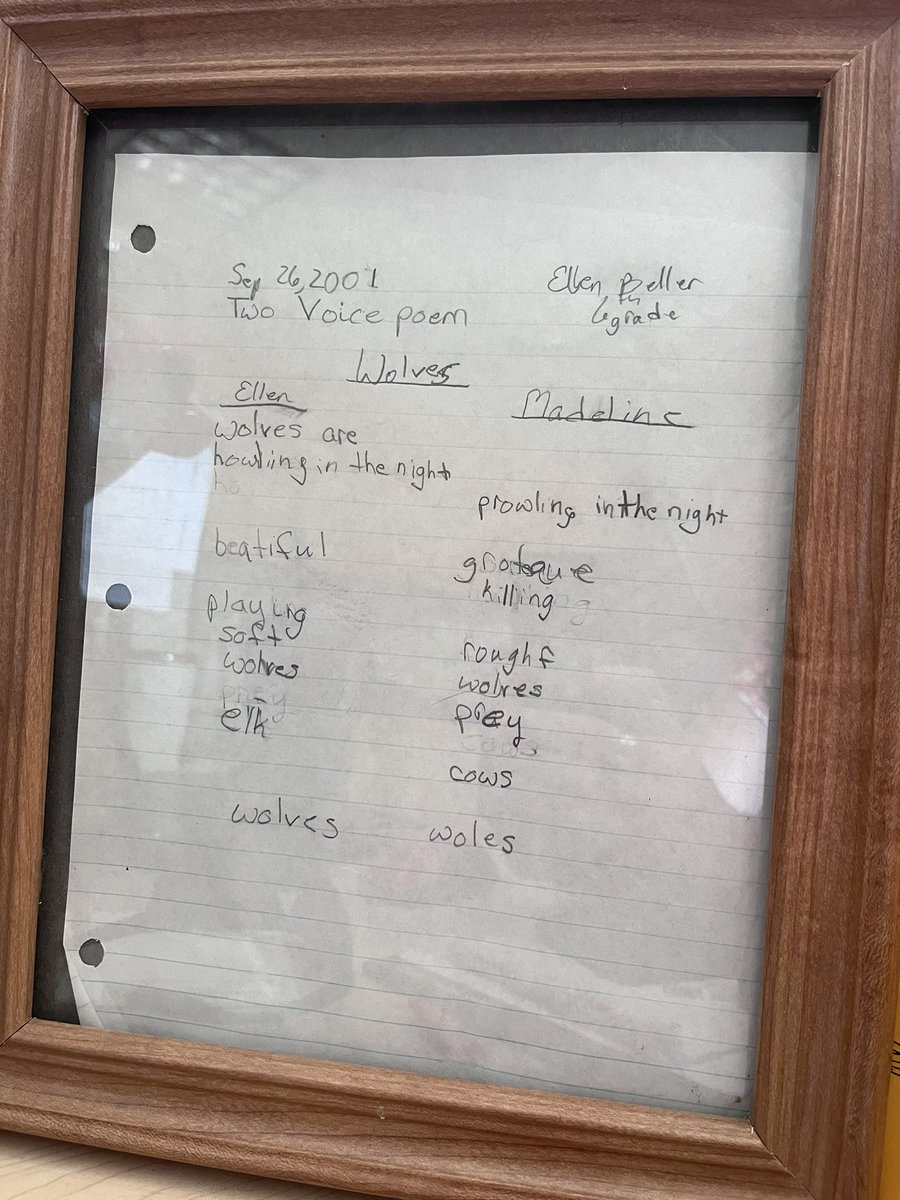 Sep 26, 2001
Ellen Beller
Two Voice poem
6th grade
Wolves
Ellen
Madeline
wolves are
howling in the night
prowling in the night
beatiful
grotesque
killing
playing
soft
roughf
wolves
wolves
prey
elk
cows
wolves
woles